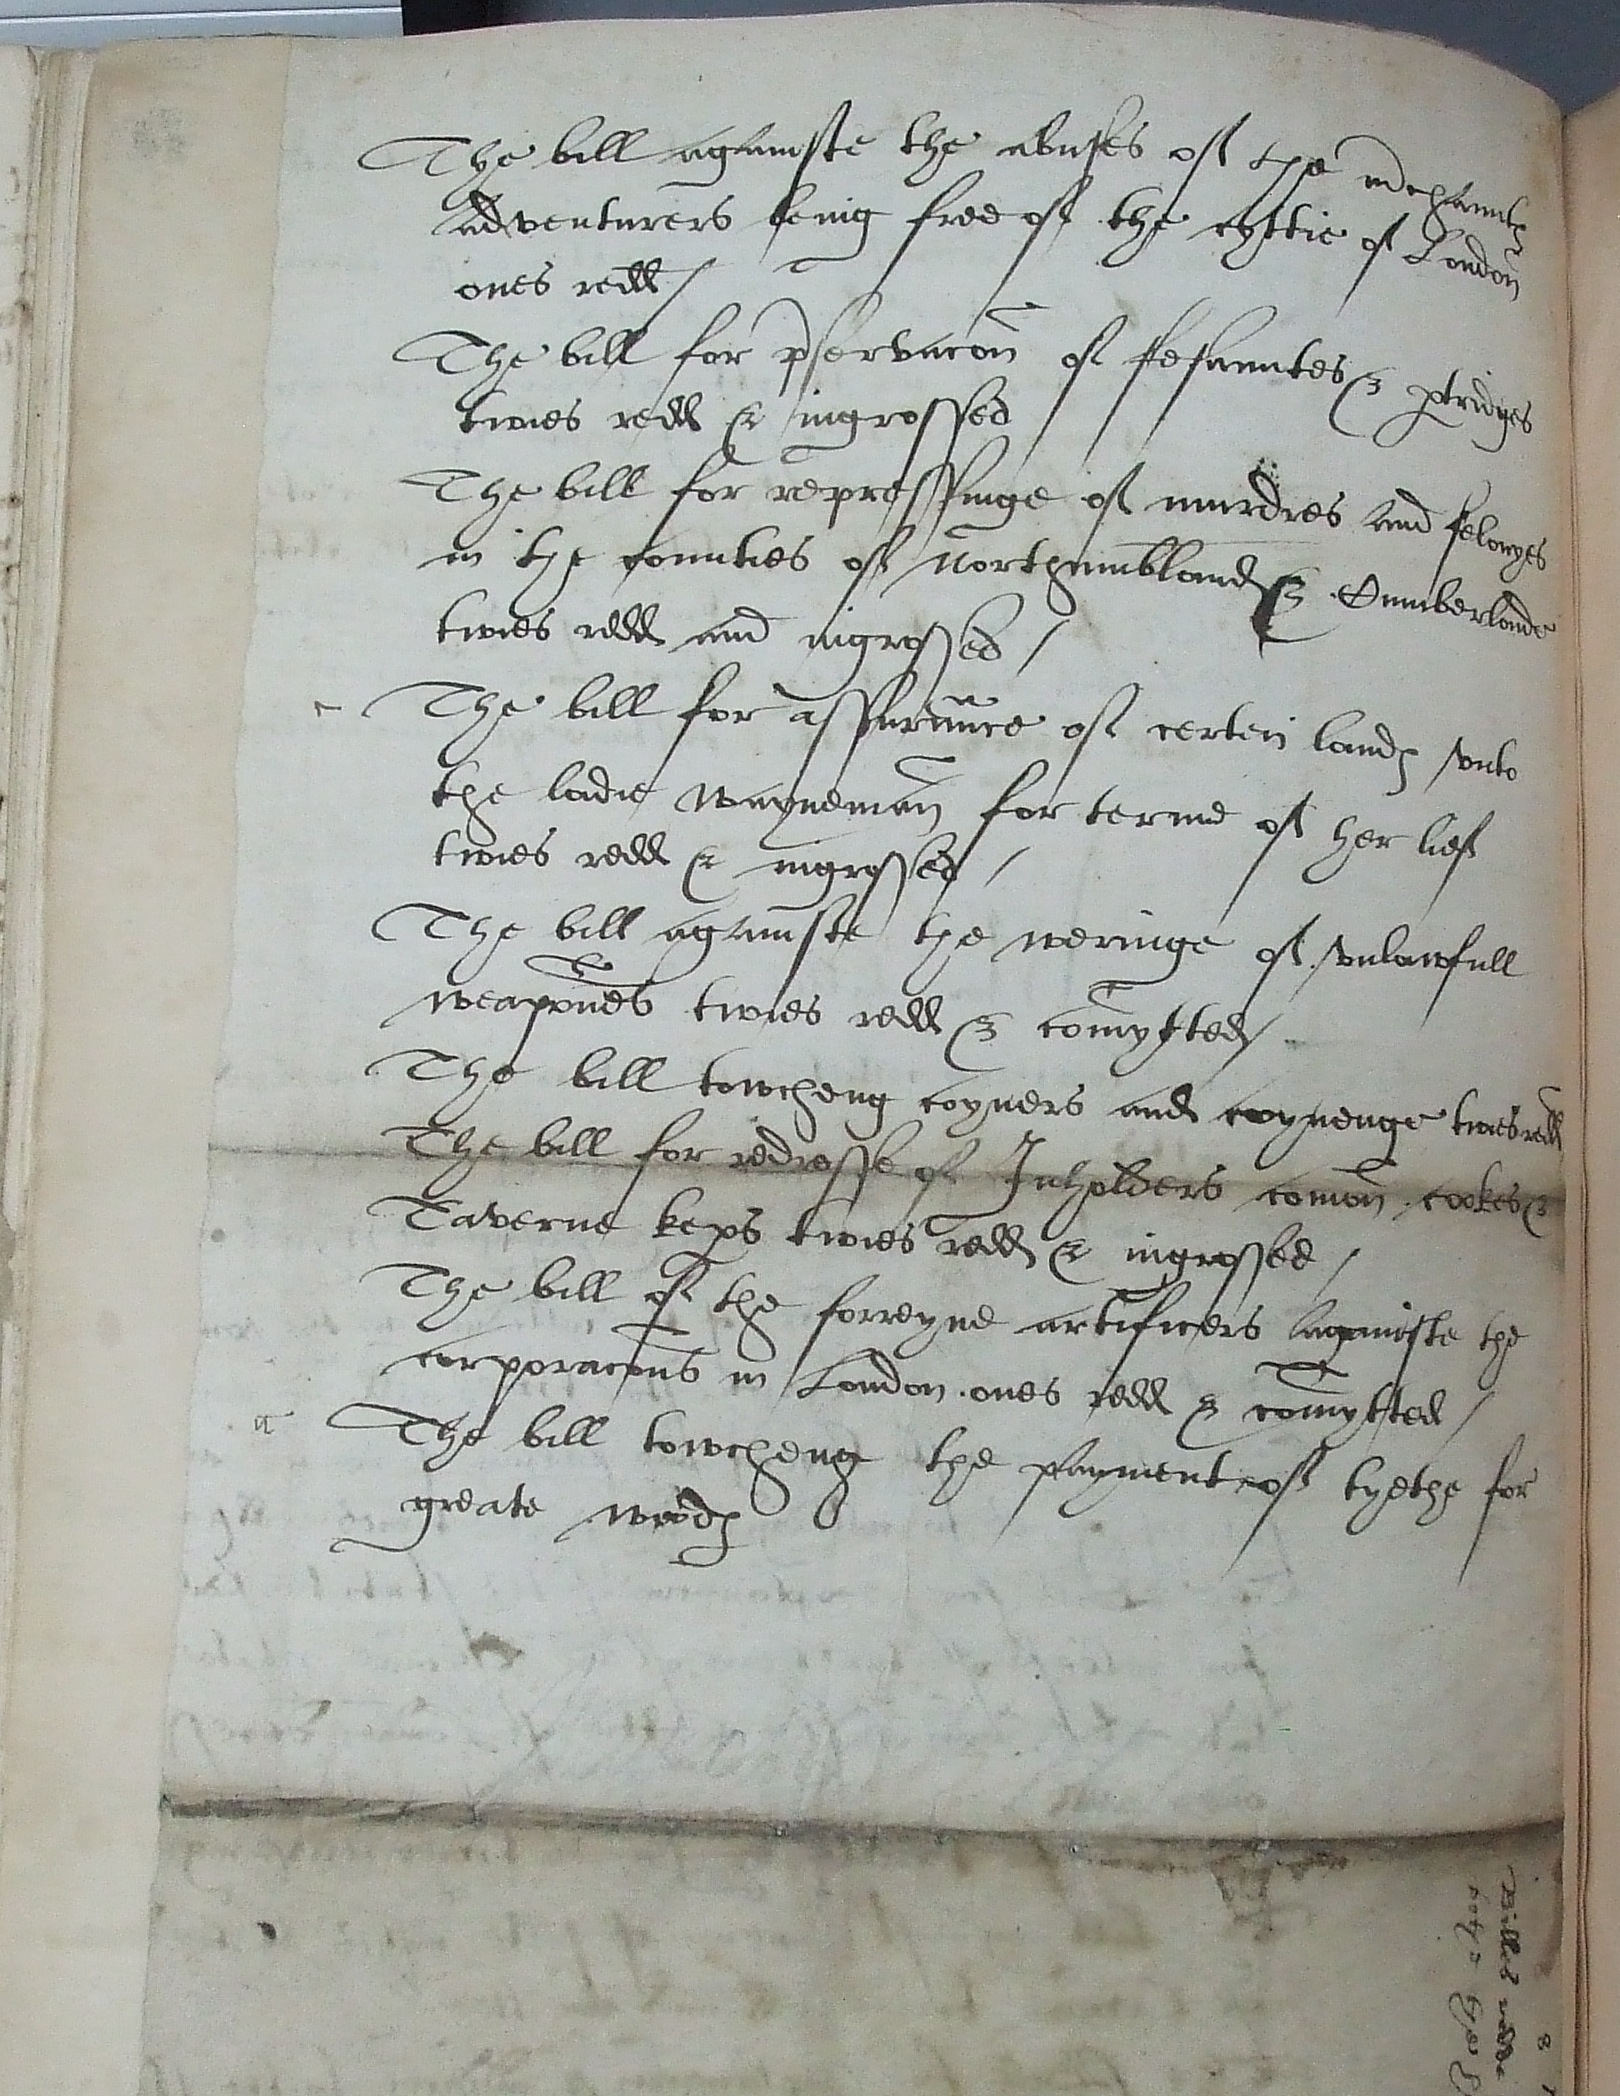 The bill agaunste the abuses of the mchaunts
Adventurers being free of the cyttie of London
ones redd /
The bill for pservacon of ffesauntes & ptridges
twies redd & ingrossed
The bill for repressinge of murdres and felonyes
in the counties of Northumbland & Cumberlande
twies redd and ingrossed /
The bill for assuraunce of certein lands unto
the ladie Wayneman for terme of her lief
twies redd & ingrossed /
The bill agaunste the weringe of unlawfull
weapones twies redd & comytted /
The bill towcheng coyners and coynenge twies redd
The bill for redresse of Inholders comon cookes &
Taverne keps twies redd & ingrossed /
The bill of the forreyne artificers agaunste the
corporacons in London ones redd & comytted /
The bill towcheng the payment of tyethe for
greate woods
Billes redde